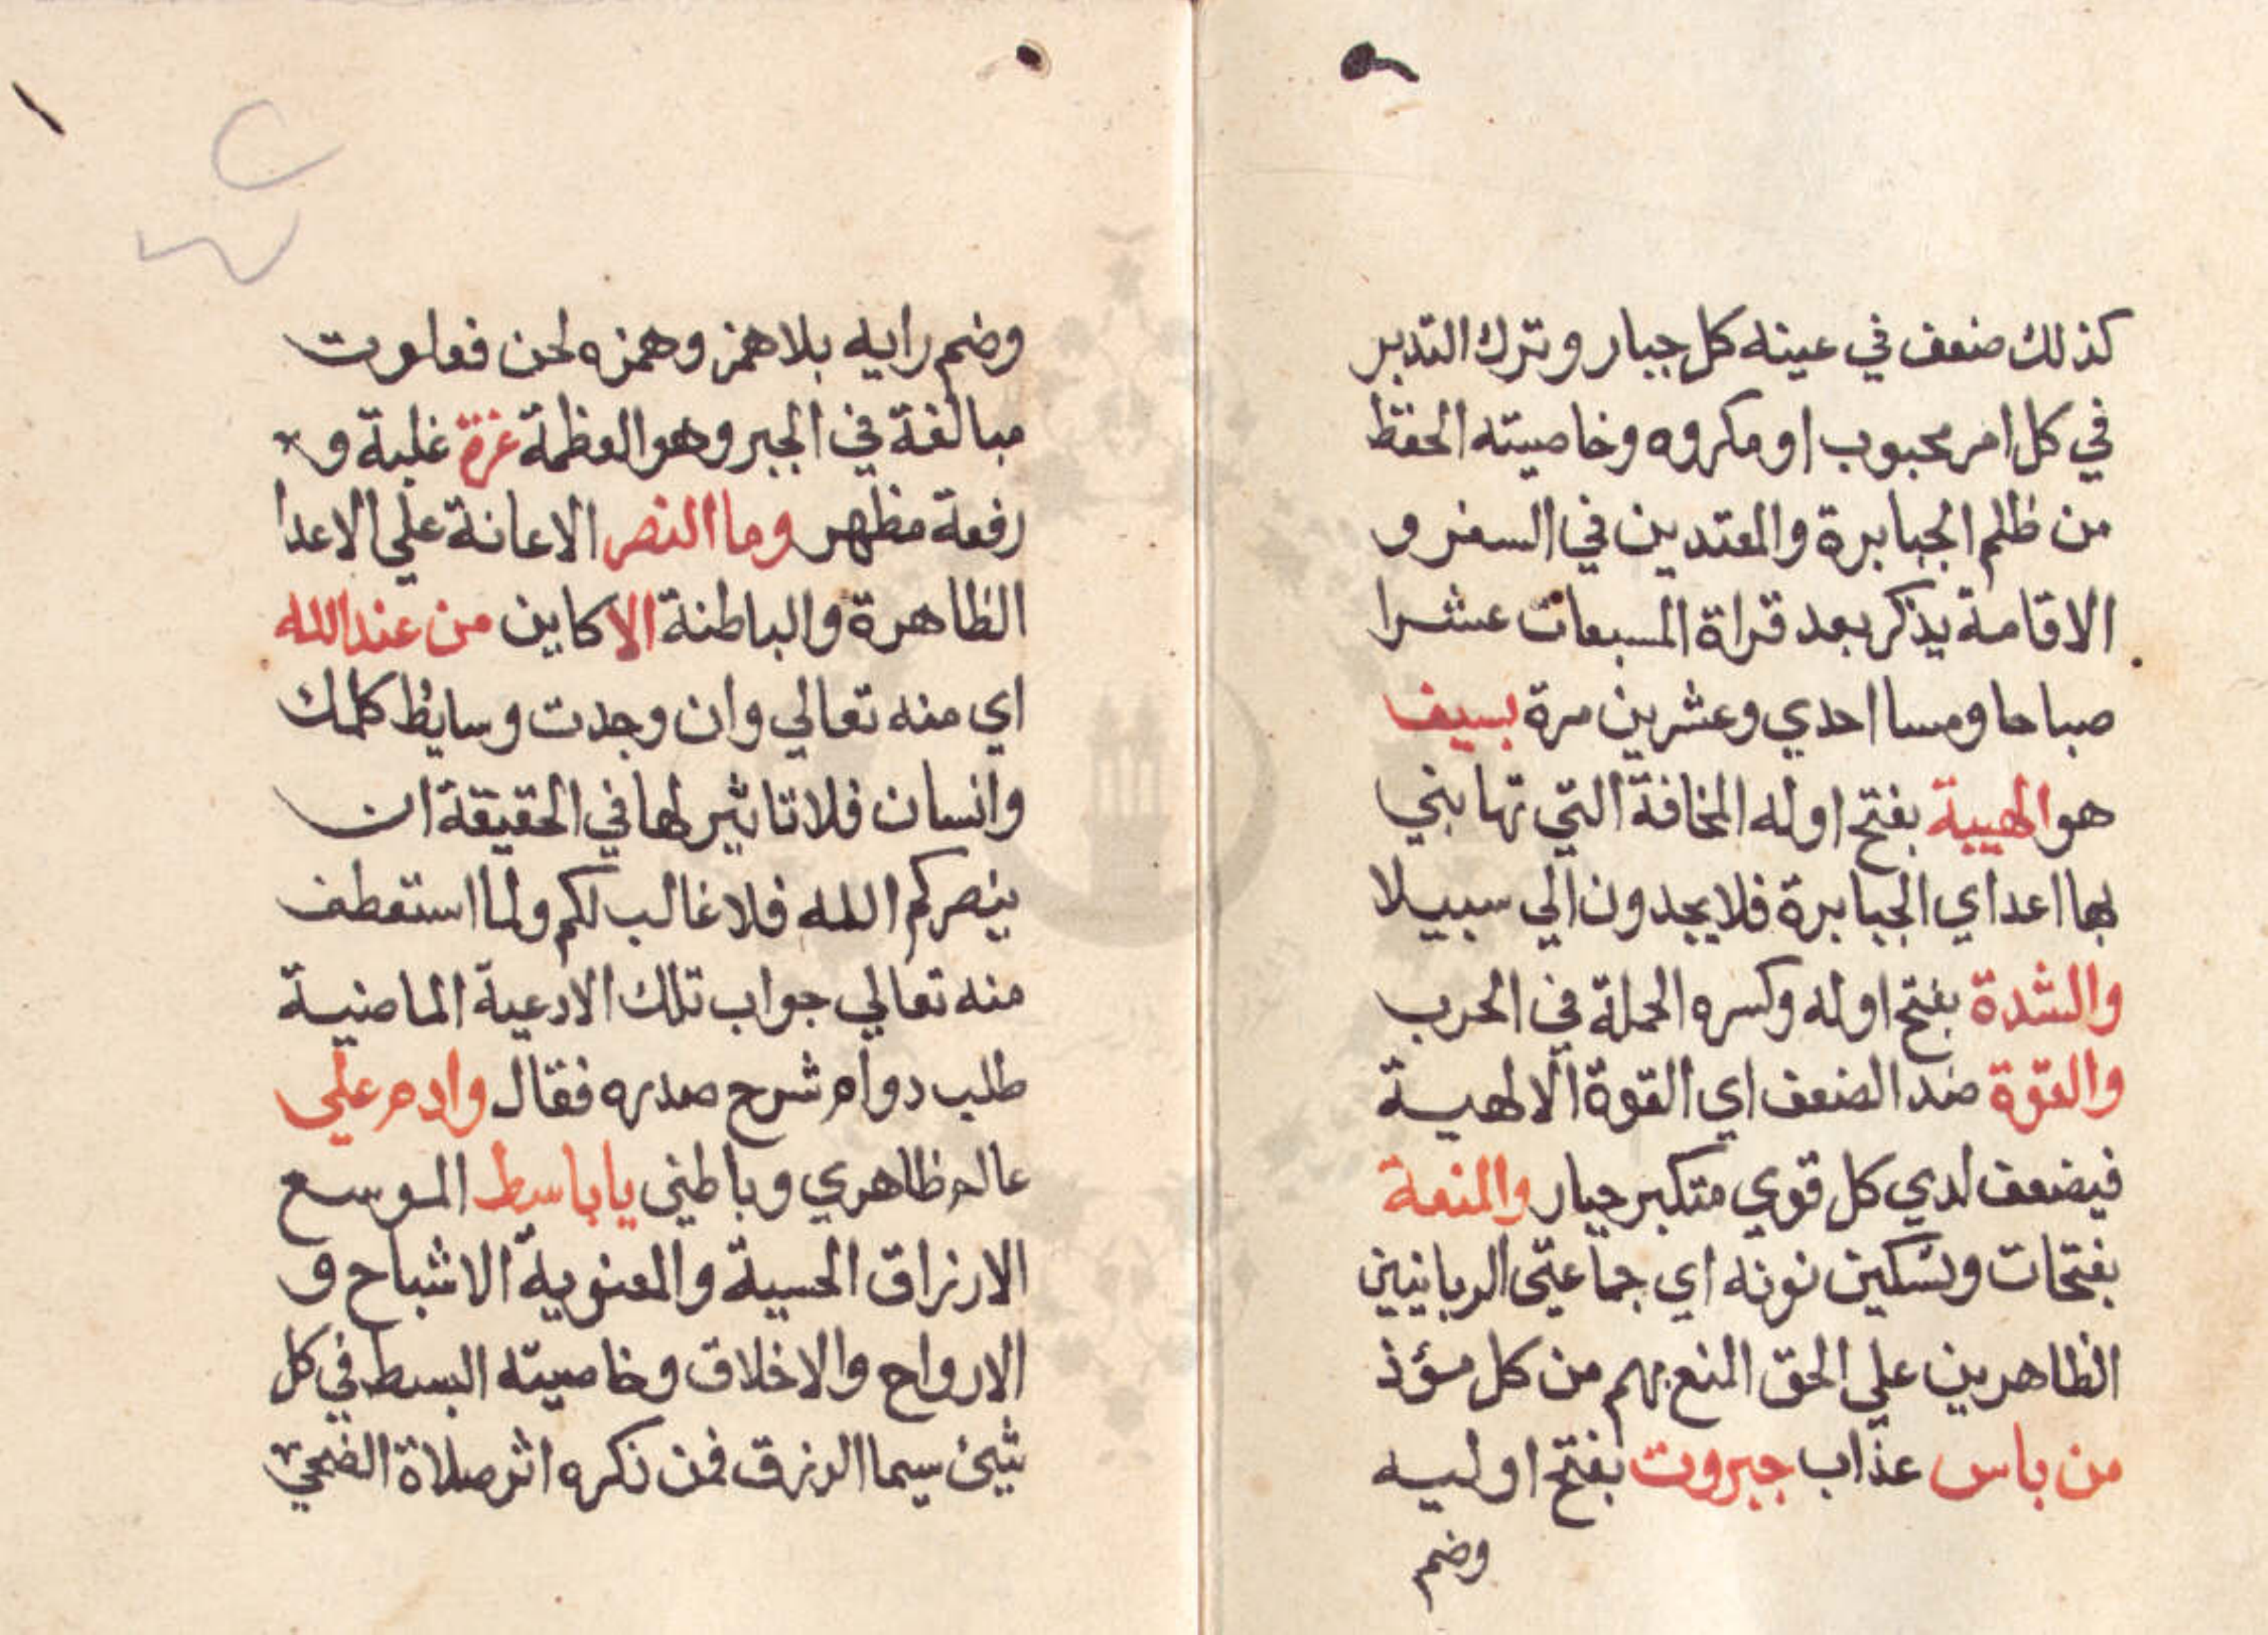 كذلك ضعف في عينه كل جبار وترك التدبر
في كل امر محبوب او مكروه وخاصيته الحفظ
من ظلم الجبابرة والمعتدين في السفر و
الاقامة يذكر بعد قراة المسبعات عشرا
صباحا ومسا احدي وعشرين مرة بسيف
هو الهيبة بفتح اوله المخافة التي تهابني
بها اعداي الجبابرة فلا يجدون الي سبيلا
والشدة بفتح اوله وكسره الحملة في الحرب
والقوة ضد الضعف اي القوة الالهية
فيضعف لدي كل قوي متكبر جبار والمنعة
بفتحات وتسكين نونه اي جماعتي الربانيين
الظاهرين علي الحق المنع بهم من كل مؤذ
من باس عذاب جبروت بفتح اوليه
وضم
وضم رايه بلا همز وهمزه لحن فعلوت
مبالغة في الجبر وهو العظمة عزة غلبة و
رفعة مظهر وما النصر الاعانة علي الاعدا
الظاهرة والباطنة الا كاين من عند الله
اي منه تعالي وان وجدت وسايط كلمك
وانسان فلا تاثير لها في الحقيقة ان
ينصركم الله فلا غالب لكم ولما استعطف
منه تعالي جواب تلك الادعية الماضية
طلب دوام شرح صدره فقال وادم علي
عالم ظاهري وباطني يا باسط الموسع
الارزاق الحسية والمعنوية الاشباح و
الارواح والاخلاق وخاصيته البسط في كل
شيئ سيما الرزق فمن ذكره اثر صلاة الضحي